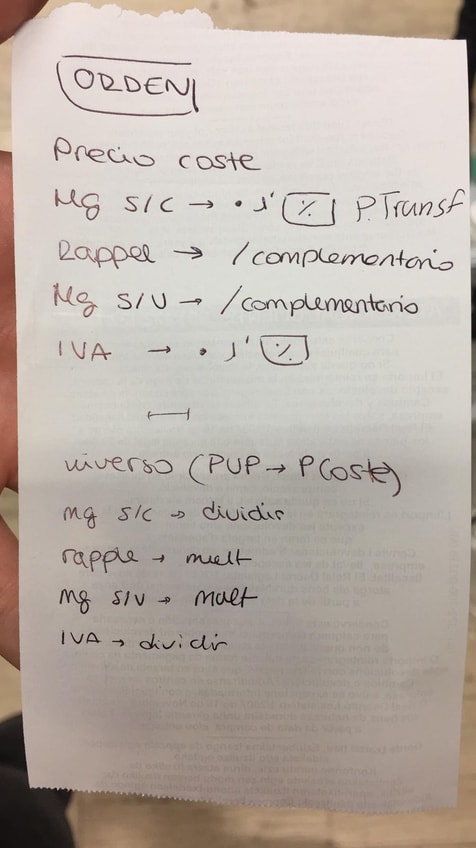 ORDEN
Precio coste
Mg S/C → · 1' % P.Transf
Rappel → /complementario
Mg S/V → /complementario
IVA → · 1' %
inverso (PVP → PCoste)
mg s/c → dividir
rapple → mult
mg s/v → mult
IVA → dividir